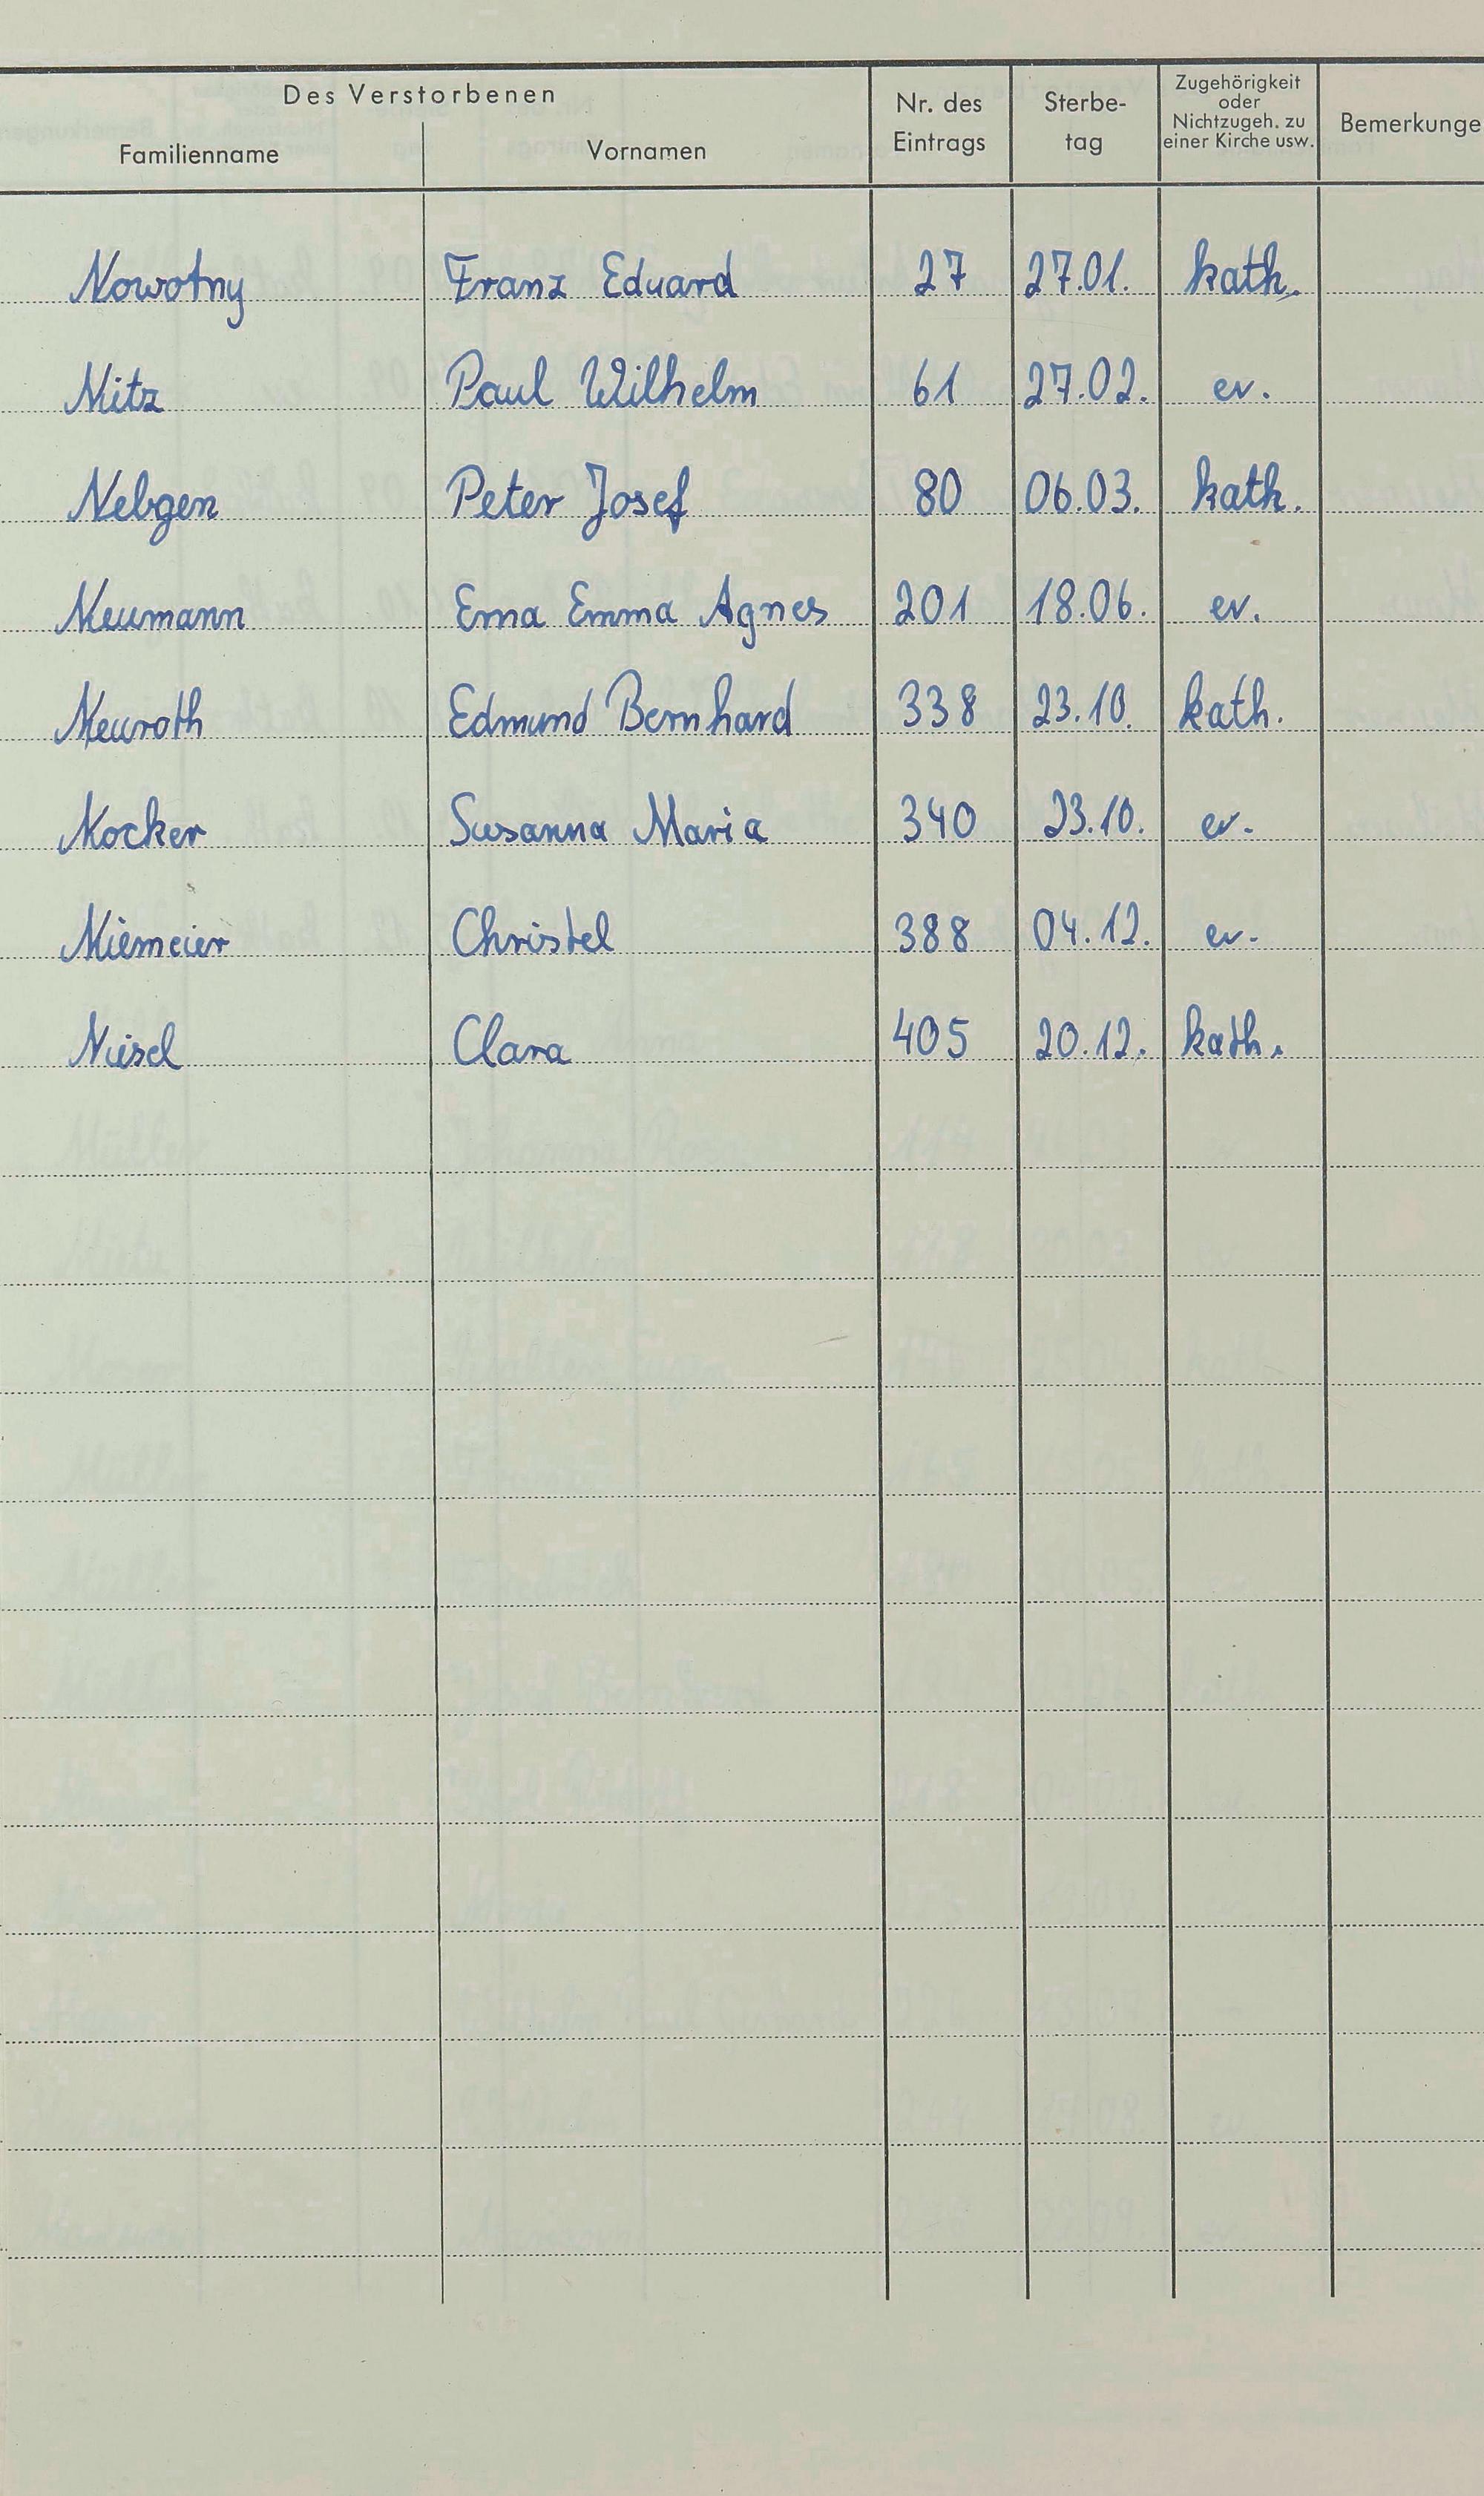 Des Verstorbenen
Familienname Vornamen Nr. des Eintrags Sterbe- tag Zugehörigkeit oder Nichtzugeh. zu einer Kirche usw. Bemerkunge
Nowotny Franz Eduard 27 27.01. kath.
Nitz Paul Wilhelm 61 27.02. ev.
Nebgen Peter Josef 80 06.03. kath.
Neumann Erna Emma Agnes 201 18.06. ev.
Neuroth Edmund Bernhard 338 23.10. kath.
Nocker Susanna Maria 340 23.10. ev.
Niemeier Christel 388 04.12. ev.
Clara 405 20.12. kath.